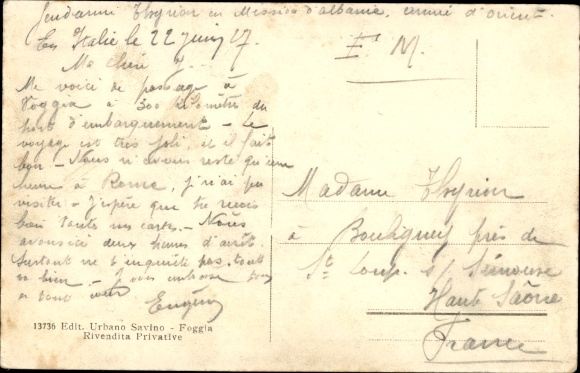 Gendarme Thyrion en Mission d'albanie, armée d'orient.
En Italie le 22 juin 17.
F. M.
Ma chère Y...
Me voici de passage à
Foggia à 300 kilomètres du
port d'embarquement - Le
voyage est très joli, et il fait
bon - Nous n'avons resté qu'une
heure à Rome, j'ai pu
visiter - J'espère que tu reçois
bien toutes mes cartes - Nous
avons ici deux heures d'arrêt.
Surtout ne t'inquiète pas, tout
va bien - Je vous embrasse tous
Eugène
Madame Thyrion
à Bouligney près de
St Loup s/ Sémouse
Haute Saône
France
13736 Edit. Urbano Savino - Foggia
Rivendita Privative